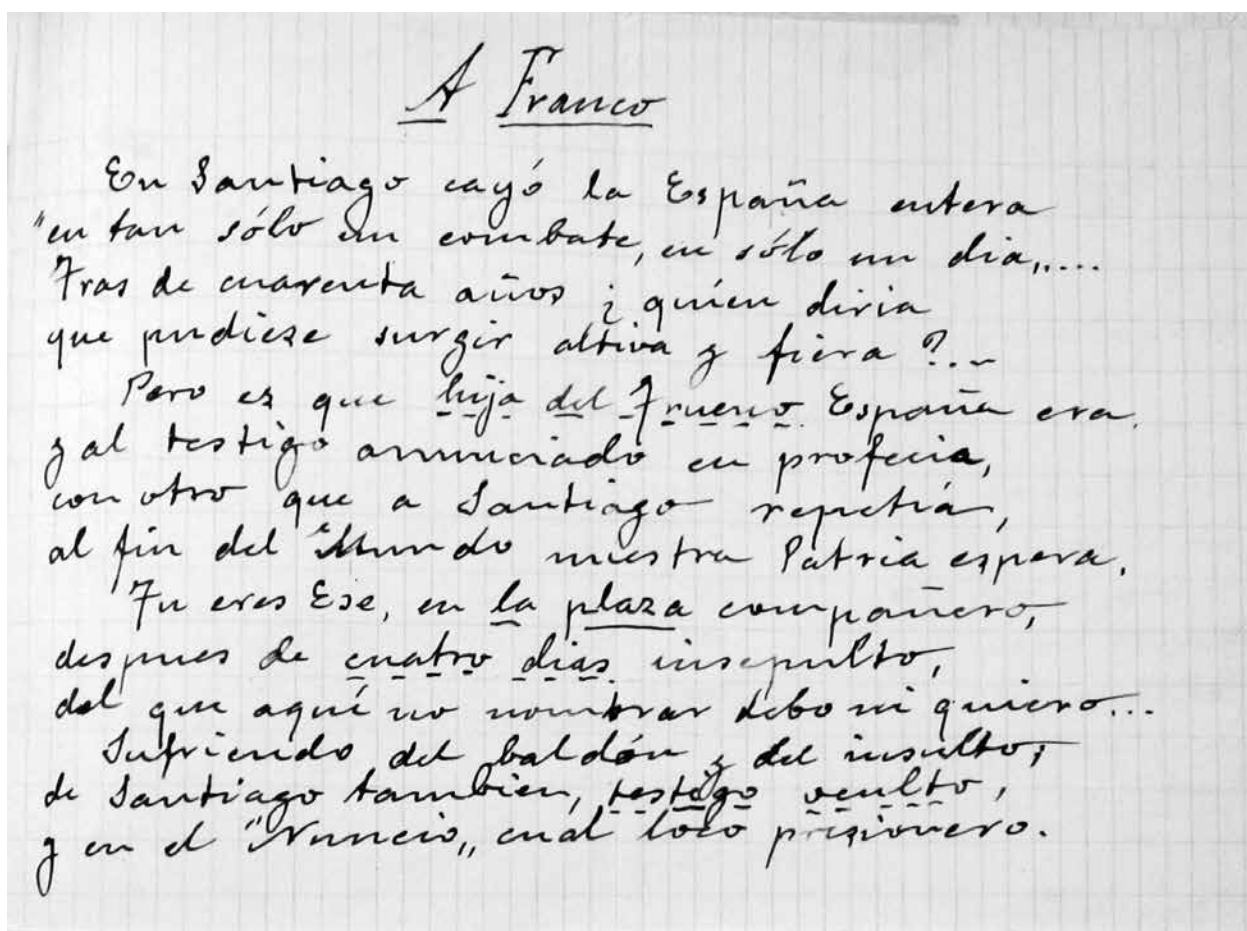 A Franco
En Santiago cayó la España entera
"en tan sólo un combate, en sólo un dia,,....
Tras de cuarenta años ¿quién diria
que pudiese surgir altiva y fiera?...
Pero es que hija del Trueno España era
y al testigo anunciado en profecia,
con otro que a Santiago repetia,
al fin del Mundo nuestra Patria espera.
Tu eres Ese, en la plaza compañero,
despues de cuatro dias insepulto,
del que aquí no nombrar debo ni quiero...
Sufriendo del baldón y del insulto,
de Santiago tambien, testigo oculto,
y en el "Nuncio,, cual loco prisionero.